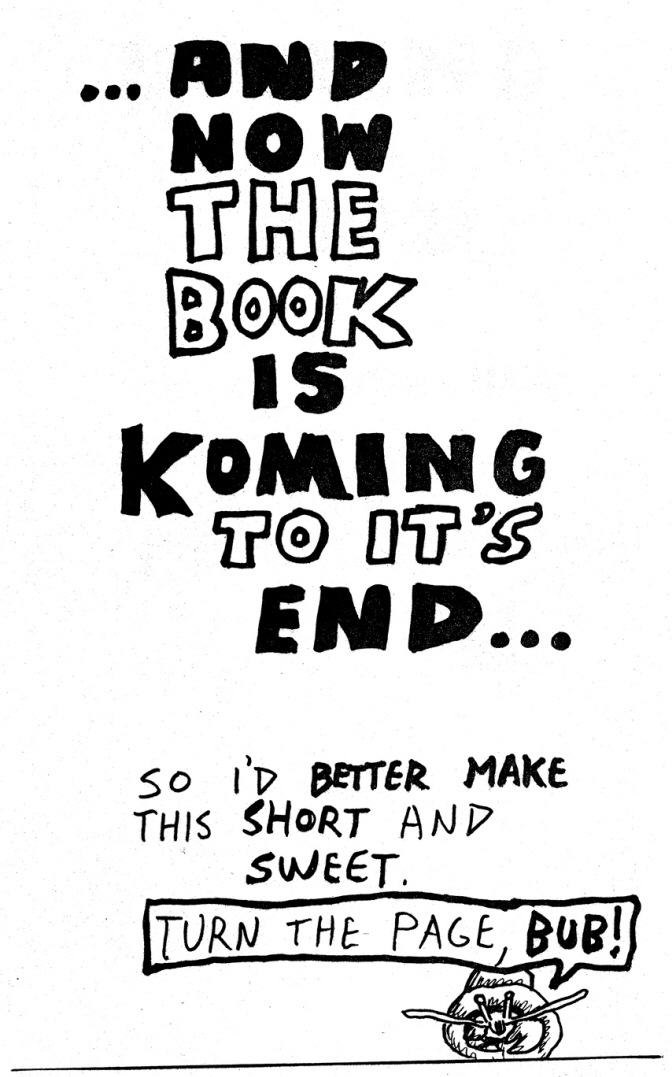 ...AND
NOW
THE
BOOK
IS
KOMING
TO IT'S
END...
SO I'D BETTER MAKE
THIS SHORT AND
SWEET.
TURN THE PAGE, BUB!